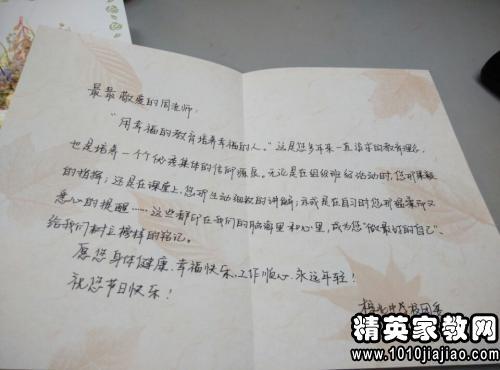 最最敬爱的周老师：
“用幸福的教育培养幸福的人。”这是您多年来一直追求的教育理念，
也是培养一个个优秀集体的信仰源泉。无论是在组织班级活动时，您那果敢
的指挥；还是在课堂上，您那生动细致的讲解；亦或是在自习时您那温柔而又
悉心的提醒……这些都印在我们的脑海里和心里，成为您“做最好的自己”、
给我们树立榜样的铭记。
愿您身体健康、幸福快乐、工作顺心、永远年轻！
祝您节日快乐！
精英家教网
www.1010jiajiao.com